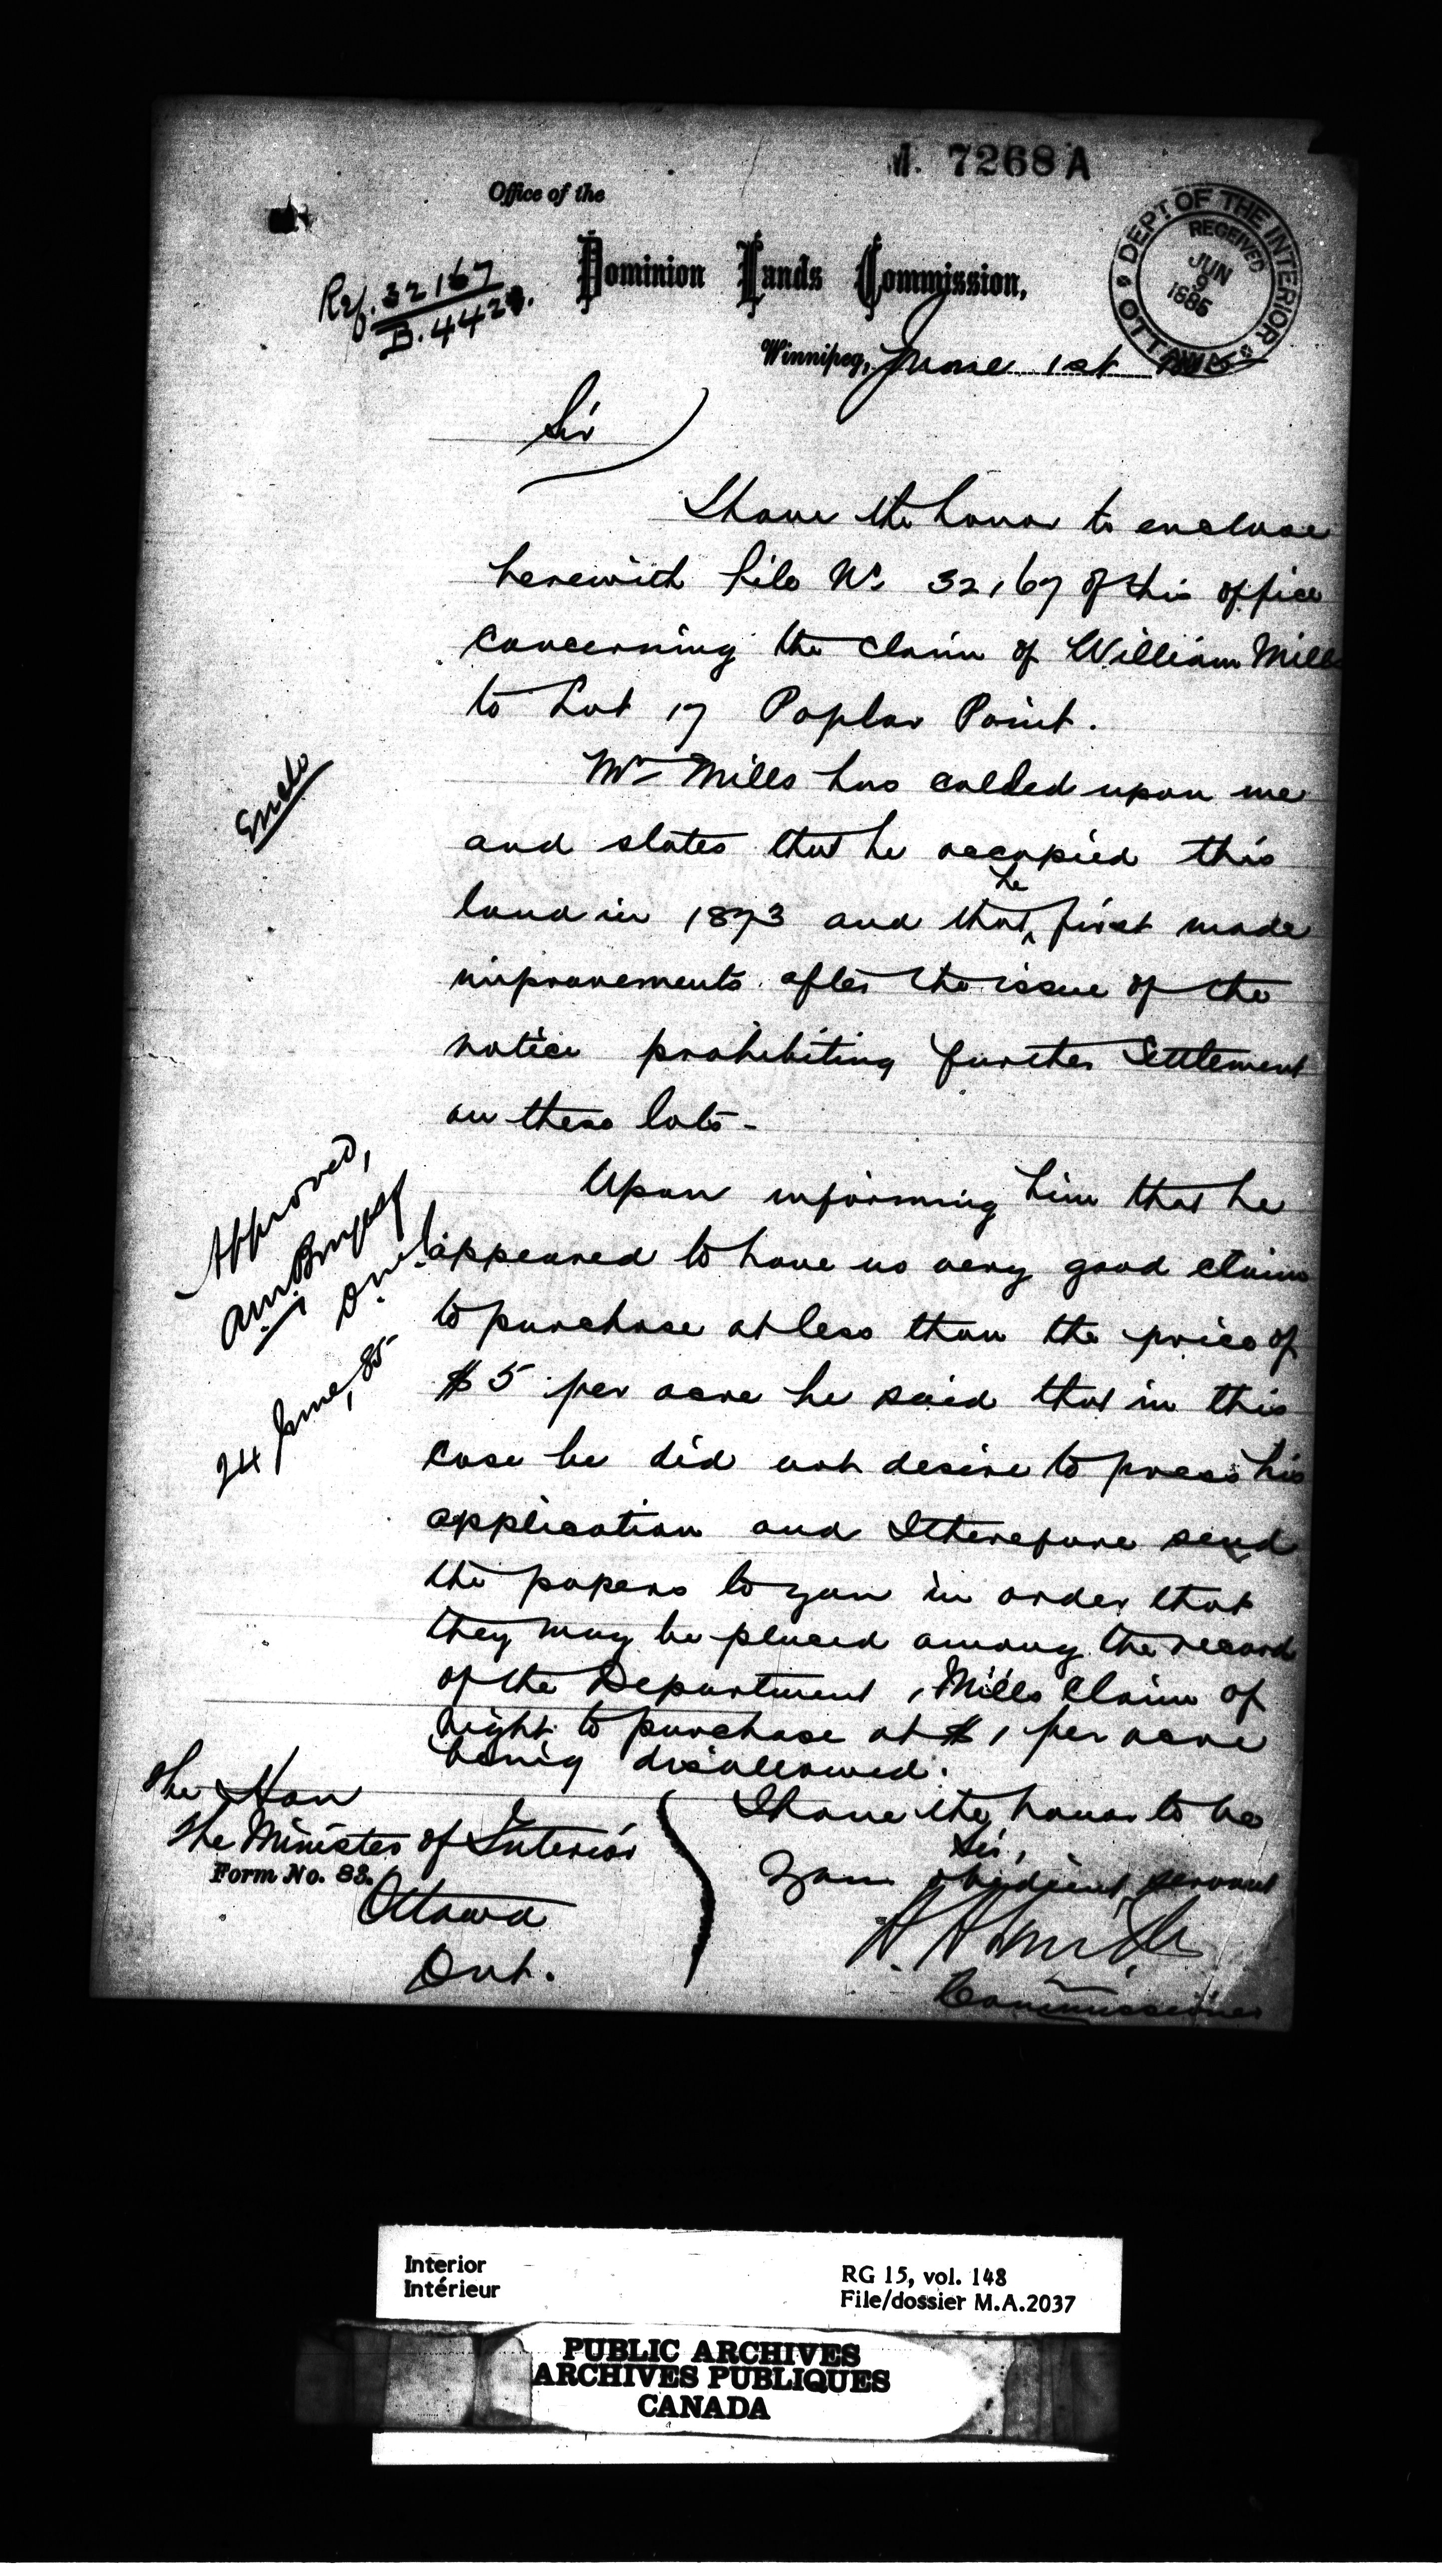 M. 7268 A
Office of the
Dominion Lands Commission,
Ref. 32167
B. 442
DEPT OF THE INTERIOR
RECEIVED
JUN
9
1885
OTTAWA
Winnipeg, June 1st 1885
Sir
I have the honor to enclose
herewith file No. 32167 of this office
concerning the claim of William Mills
to Lot 17 Poplar Point.
Mr Mills has called upon me
and states that he occupied this
land in 1873 and that he first made
improvements after the issue of the
notice prohibiting further Settlement
on these lots -
Upon informing him that he
appeared to have no very good claim
to purchase at less than the price of
$5 per acre he said that in this
case he did not desire to press his
application and I therefore send
the papers to you in order that
they may be placed among the record
of the Department, Mills Claim of
right to purchase at $1 per acre
being disallowed.
I have the honor to be
Sir,
Your obedient servant
H. H. Smith
Commissioner
Enclo
Approved,
A.M. Burgess
D.M.I.
24 June, 85
The Hon
The Minister of Interior
Form No. 83.
Ottawa
Ont.
Interior
Intérieur
RG 15, vol. 148
File/dossier M.A.2037
PUBLIC ARCHIVES
ARCHIVES PUBLIQUES
CANADA